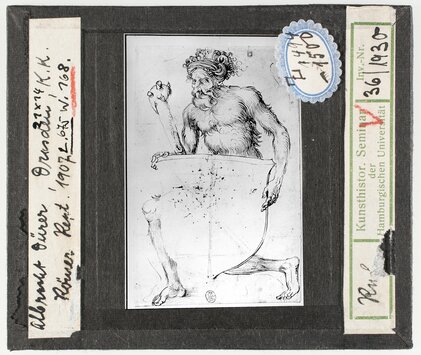 Albrecht Dürer, Dresden, K.K.
21x14
Römer Kent, 1907 L.675 W.168.
L 14%
~1500
Kunsthistor. Seminar
der
Hamburgischen Universität
Inv.-Nr.
36/1930